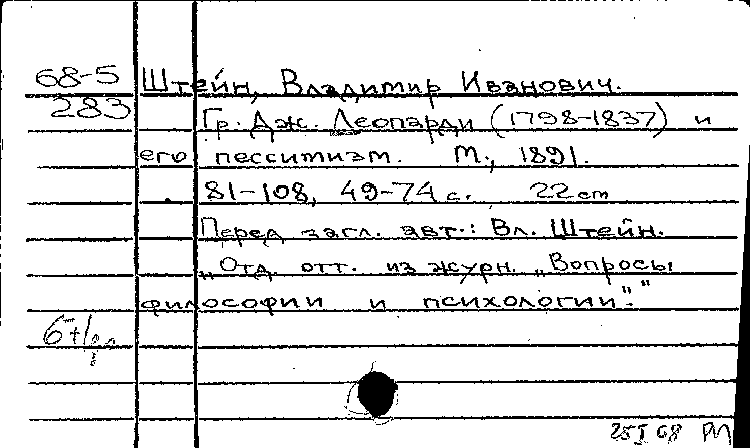 68-5 Штейн, Владимир Иванович.
283 Гр. Дж. Леопарди (1798-1837) и
его пессимизм. М., 1891.
81-108, 49-74 с. 22 см
Перед загл. авт.: Вл. Штейн.
„Отд. отт. из журн. „Вопросы
философии и психологии"."
25 I 68